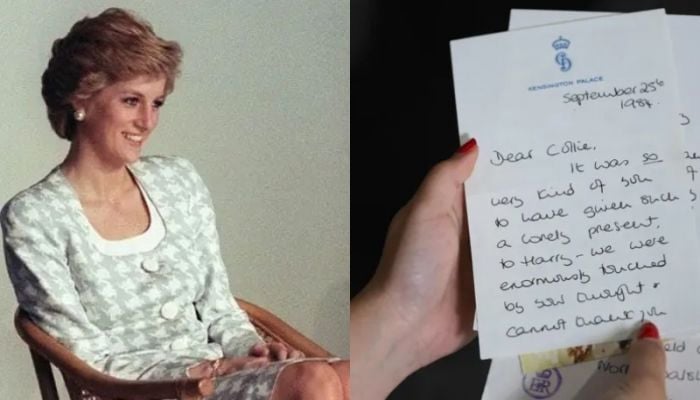 KENSINGTON PALACE
September 25th
1984.
Dear Collie,
It was so
very kind of you
to have given such
a lovely present
to Harry - we were
enormously touched
by your thought &
cannot thank you